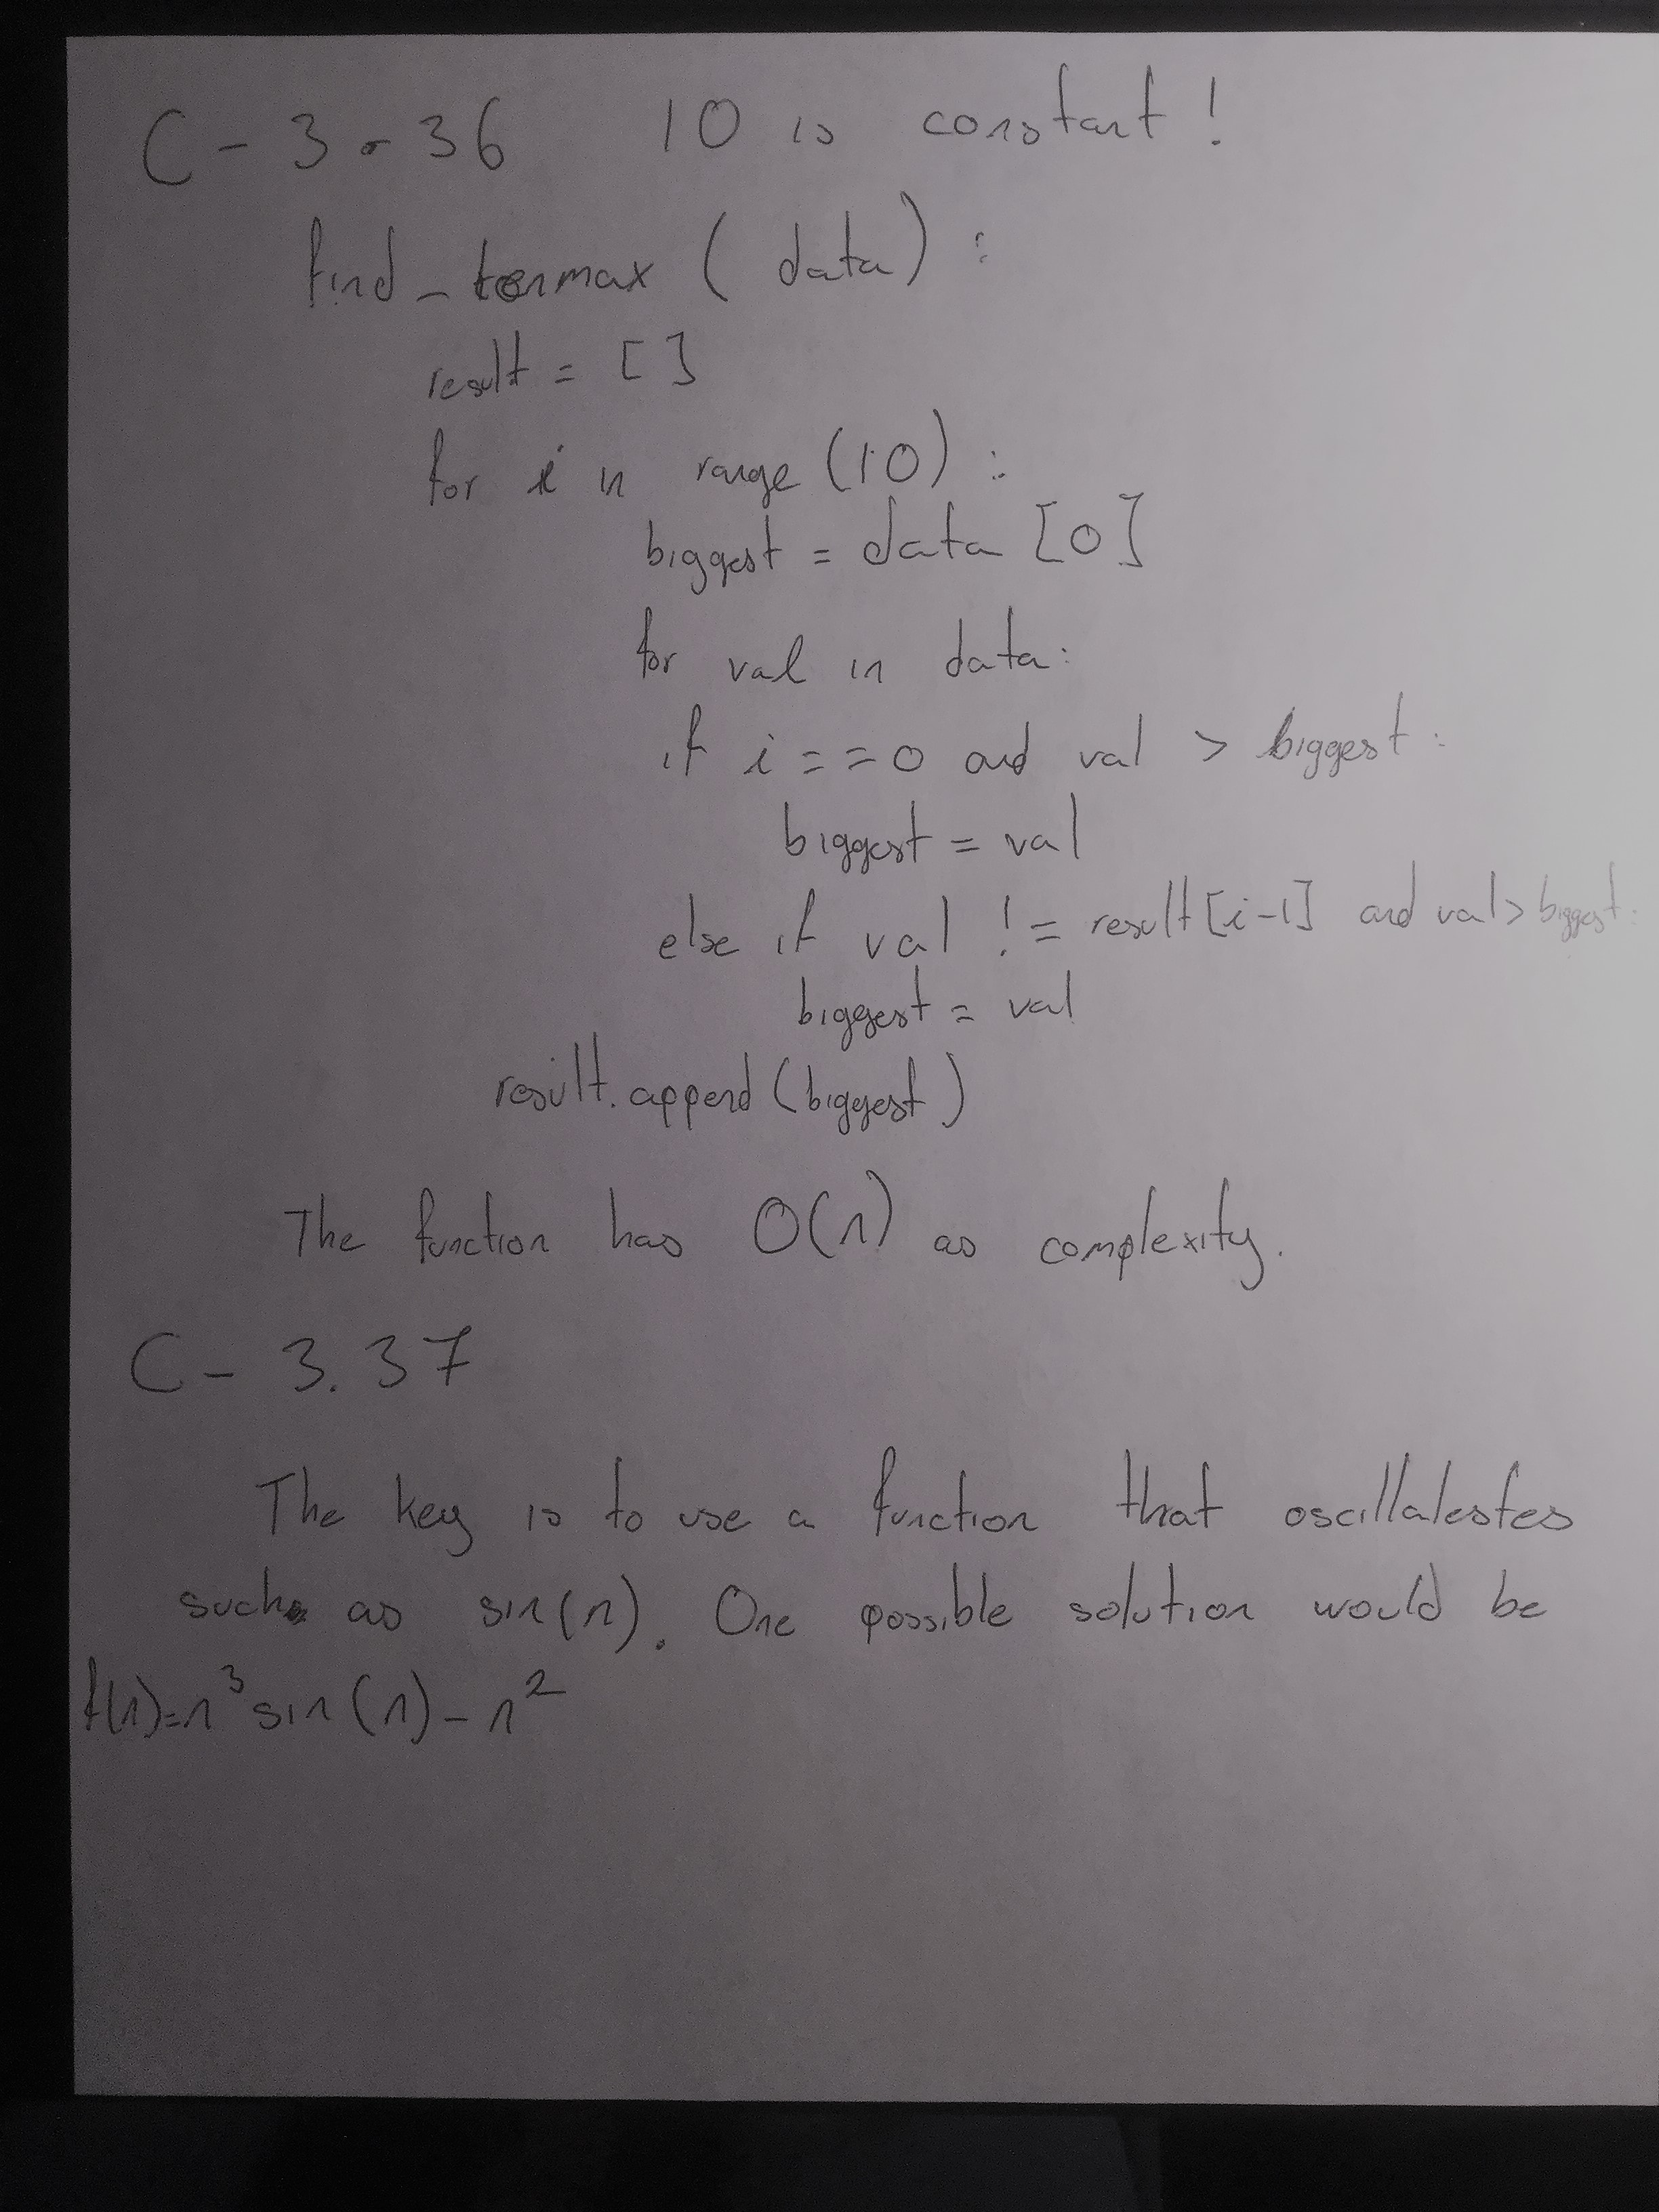 C - 3 . 36 10 is constant !
find_tenmax ( data ) :
result = [ ]
for i in range (10) :
biggest = data [0]
for val in data:
if i == 0 and val > biggest :
biggest = val
else if val != result [i-1] and val > biggest :
biggest = val
result.append (biggest)
The function has O(n) as complexity.
C - 3.37
The key is to use a function that oscillalestes
such as sin(n). One possible solution would be
f(n)=n³ sin (n) - n²